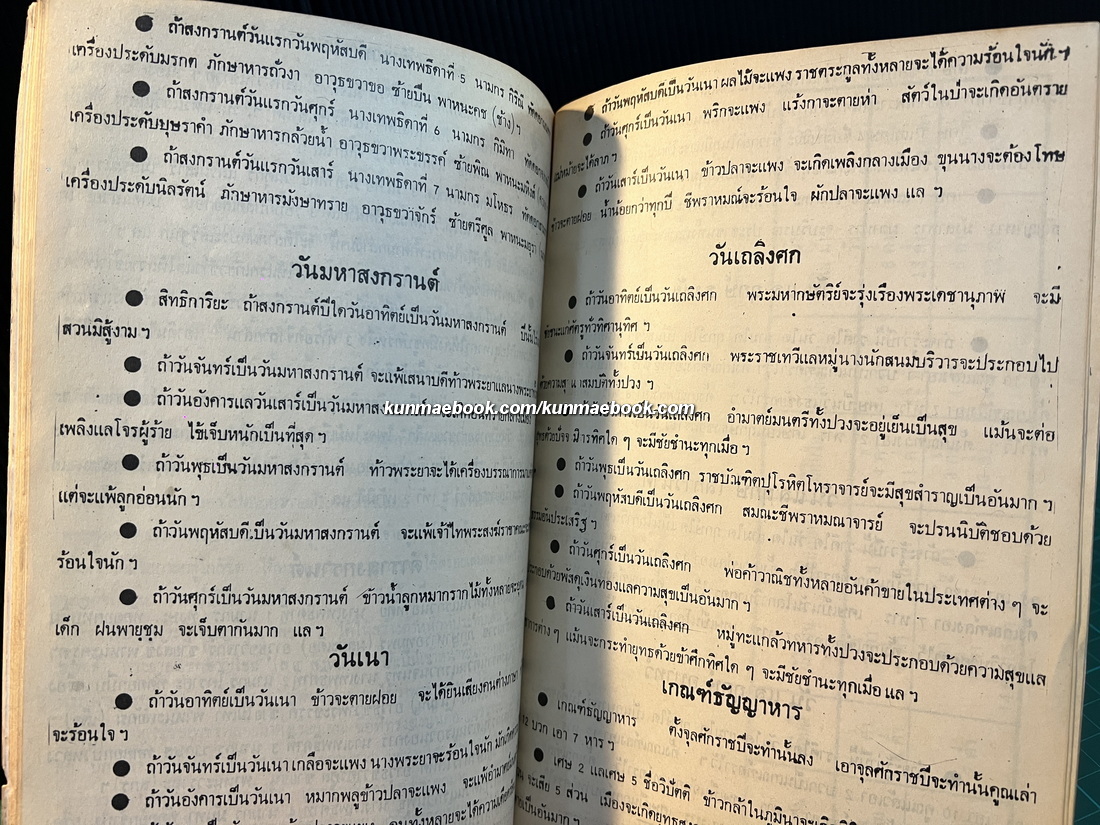 ● ถ้าสงกรานต์วันแรกวันพฤหัสบดี นางเทพธิดาที่ 5 นามกร กิริณี
เครื่องประดับมรกต ภักษาหารถั่วงา อาวุธขวาขอ ซ้ายปืน พาหนะคช (ช้าง) ฯ
● ถ้าสงกรานต์วันแรกวันศุกร์ นางเทพธิดาที่ 6 นามกร กิมิทา
เครื่องประดับบุษราคำ ภักษาหารกล้วยน้ำ อาวุธขวาพระขรรค์ ซ้ายพิณ
● ถ้าสงกรานต์วันแรกวันเสาร์ นางเทพธิดาที่ 7 นามกร มโหธร
เครื่องประดับนิลรัตน์ ภักษาหารมังษาทราย อาวุธขวาจักร์ ซ้ายตรีศูล
วันมหาสงกรานต์
● สิทธิการิยะ ถ้าสงกรานต์ปีใดวันอาทิตย์เป็นวันมหาสงกรานต์
สวนมิสู้งาม ฯ
● ถ้าวันจันทร์เป็นวันมหาสงกรานต์ จะแพ้เสนาบดีท้าวพระยาแลนาง
● ถ้าวันอังคารแลวันเสาร์เป็นวันมหาสงกรานต์
เพลิงแลโจรผู้ร้าย ไข้เจ็บหนักเป็นที่สุด ฯ
● ถ้าวันพุธเป็นวันมหาสงกรานต์ ท้าวพระยาจะได้เครื่องบรรณาการ
แต่จะแพ้ลูกอ่อนนัก ฯ
● ถ้าวันพฤหัสบดีเป็นวันมหาสงกรานต์ จะแพ้เจ้าไทพระสงฆ์
ร้อนใจนัก ฯ
● ถ้าวันศุกร์เป็นวันมหาสงกรานต์ ข้าวน้ำลูกหมากรากไม้ทั้งหลาย
เด็ก ฝนพายุชุม จะเจ็บตากันมาก แล ฯ
วันเนา
● ถ้าวันอาทิตย์เป็นวันเนา ข้าวจะตายฝอย จะได้ยินเสียงคน
จะร้อนใจ ฯ
● ถ้าวันจันทร์เป็นวันเนา เกลือจะแพง นางพระยาจะร้อนใจนัก
● ถ้าวันอังคารเป็นวันเนา หมากพลูข้าวปลาจะแพง
● ถ้าวันพฤหัสบดีเป็นวันเนา ผลไม้จะแพง ราชตระกูลทั้งหลายจะได้ความร้อนใจนัก ฯ
● ถ้าวันศุกร์เป็นวันเนา พริกจะแพง แร้งกาจะตายห่า สัตว์ในป่าจะเกิดอันตราย
แม่หม้ายจะได้ลาภ ฯ
● ถ้าวันเสาร์เป็นวันเนา ข้าวปลาจะแพง จะเกิดเพลิงกลางเมือง ขุนนางจะต้องโทษ
ข้าวจะตายฝอย น้ำน้อยกว่าทุกปี ชีพราหมณ์จะร้อนใจ ผักปลาจะแพง แล ฯ
วันเถลิงศก
● ถ้าวันอาทิตย์เป็นวันเถลิงศก พระมหากษัตริย์จะรุ่งเรืองพระเดชานุภาพ จะมี
ชัยชนะแก่ศัตรูทั่วทิศานุทิศ ฯ
● ถ้าวันจันทร์เป็นวันเถลิงศก พระราชเทวีแลหมู่นางนักสนมบริวารจะประกอบไป
สมบัติทั้งปวง ฯ
kunmaebook.com/kunmaebook.com
เป็นวันเถลิงศก อำมาตย์มนตรีทั้งปวงจะอยู่เย็นเป็นสุข แม้นจะต่อ
ใด ๆ จะมีชัยชำนะทุกเมื่อ ฯ
● ถ้าวันพุธเป็นวันเถลิงศก ราชบัณฑิตปุโรหิตโหราจารย์จะมีสุขสำราญเป็นอันมาก ฯ
● ถ้าวันพฤหัสบดีเป็นวันเถลิงศก สมณะชีพราหมณาจารย์ จะปรนนิบัติชอบด้วย
อันประเสริฐ ฯ
● ถ้าวันศุกร์เป็นวันเถลิงศก พ่อค้าวาณิชทั้งหลายอันค้าขายในประเทศต่าง ๆ จะ
ประกอบด้วยพัสดุเงินทองแลความสุขเป็นอันมาก ฯ
● ถ้าวันเสาร์เป็นวันเถลิงศก หมู่ทะแกล้วทหารทั้งปวงจะประกอบด้วยความสุขแล
ต่าง ๆ แม้นจะกระทำยุทธด้วยข้าศึกทิศใด ๆ จะมีชัยชำนะทุกเมื่อ แล ฯ
เกณฑ์ธัญญาหาร
● เกณฑ์ธัญญาหาร ตั้งจุลศักราชปีจะทำนั้นลง เอาจุลศักราชปีจะทำนั้นคูณเล่า
บวก เอา 7 หาร ฯ
● เศษ 2 แลเศษ 5 ชื่อวิปัตติ ข้าวกล้าในภูมินาจะเกิด
จะเสีย 5 ส่วน เมืองจะเกิดยุทธสง
เป็นอันมาก ฯ